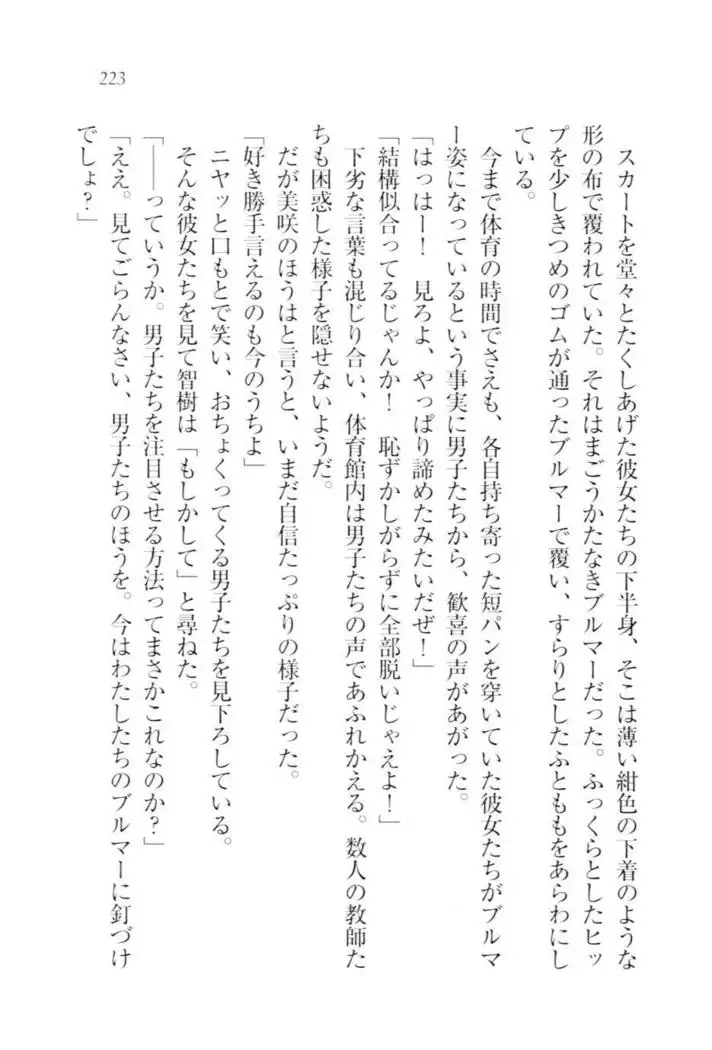 223
　スカートを堂々とたくしあげた彼女たちの下半身、そこは薄い紺色の下着のような
形の布で覆われていた。それはまごうかたなきブルマーだった。ふっくらとしたヒッ
プを少しきつめのゴムが通ったブルマーで覆い、すらりとしたふとももをあらわにし
ている。
　今まで体育の時間でさえも、各自持ち寄った短パンを穿いていた彼女たちがブルマ
ー姿になっているという事実に男子たちから、歓喜の声があがった。
「はっはー！　見ろよ、やっぱり諦めたみたいだぜ！」
「結構似合ってるじゃんか！　恥ずかしがらずに全部脱いじゃえよ！」
　下劣な言葉も混じり合い、体育館内は男子たちの声であふれかえる。数人の教師た
ちも困惑した様子を隠せないようだ。
　だが美咲のほうはと言うと、いまだ自信たっぷりの様子だった。
「好き勝手言えるのも今のうちよ」
　ニヤッと口もとで笑い、おちょくってくる男子たちを見下ろしている。
　そんな彼女たちを見て智樹は「もしかして」と尋ねた。
「――っていうか。男子たちを注目させる方法ってまさかこれなのか？」
「ええ。見てごらんなさい、男子たちのほうを。今はわたしたちのブルマーに釘づけ
でしょ？」